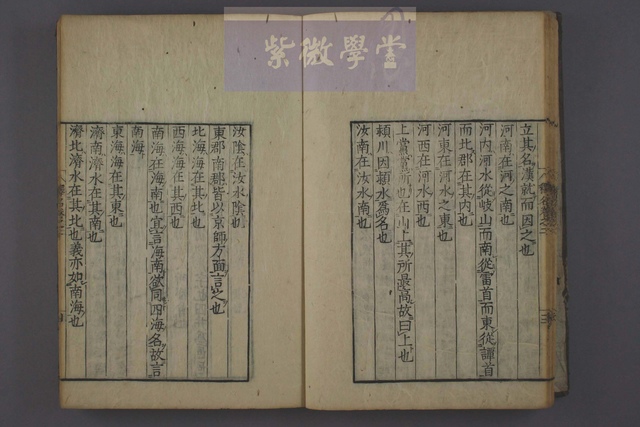 紫微學堂
立其名漢就而因之也
河南在河之南也
河內河水從岐山而南從雷首而東從譚首
而北郡在其內也
河東在河水之東也
河西在河水西也
上黨黨所也在山上其所最高故曰上也
潁川因潁水爲名也
汝南在汝水南也
汝陰在汝水陰也
東郡南郡皆以京師方面言之也
北海海在其北也
西海海在其西也
南海在海南也宜言海南欲同四海名故言
南海
東海海在其東也
濟南濟水在其南也
濟北濟水在其北也義亦如南海也